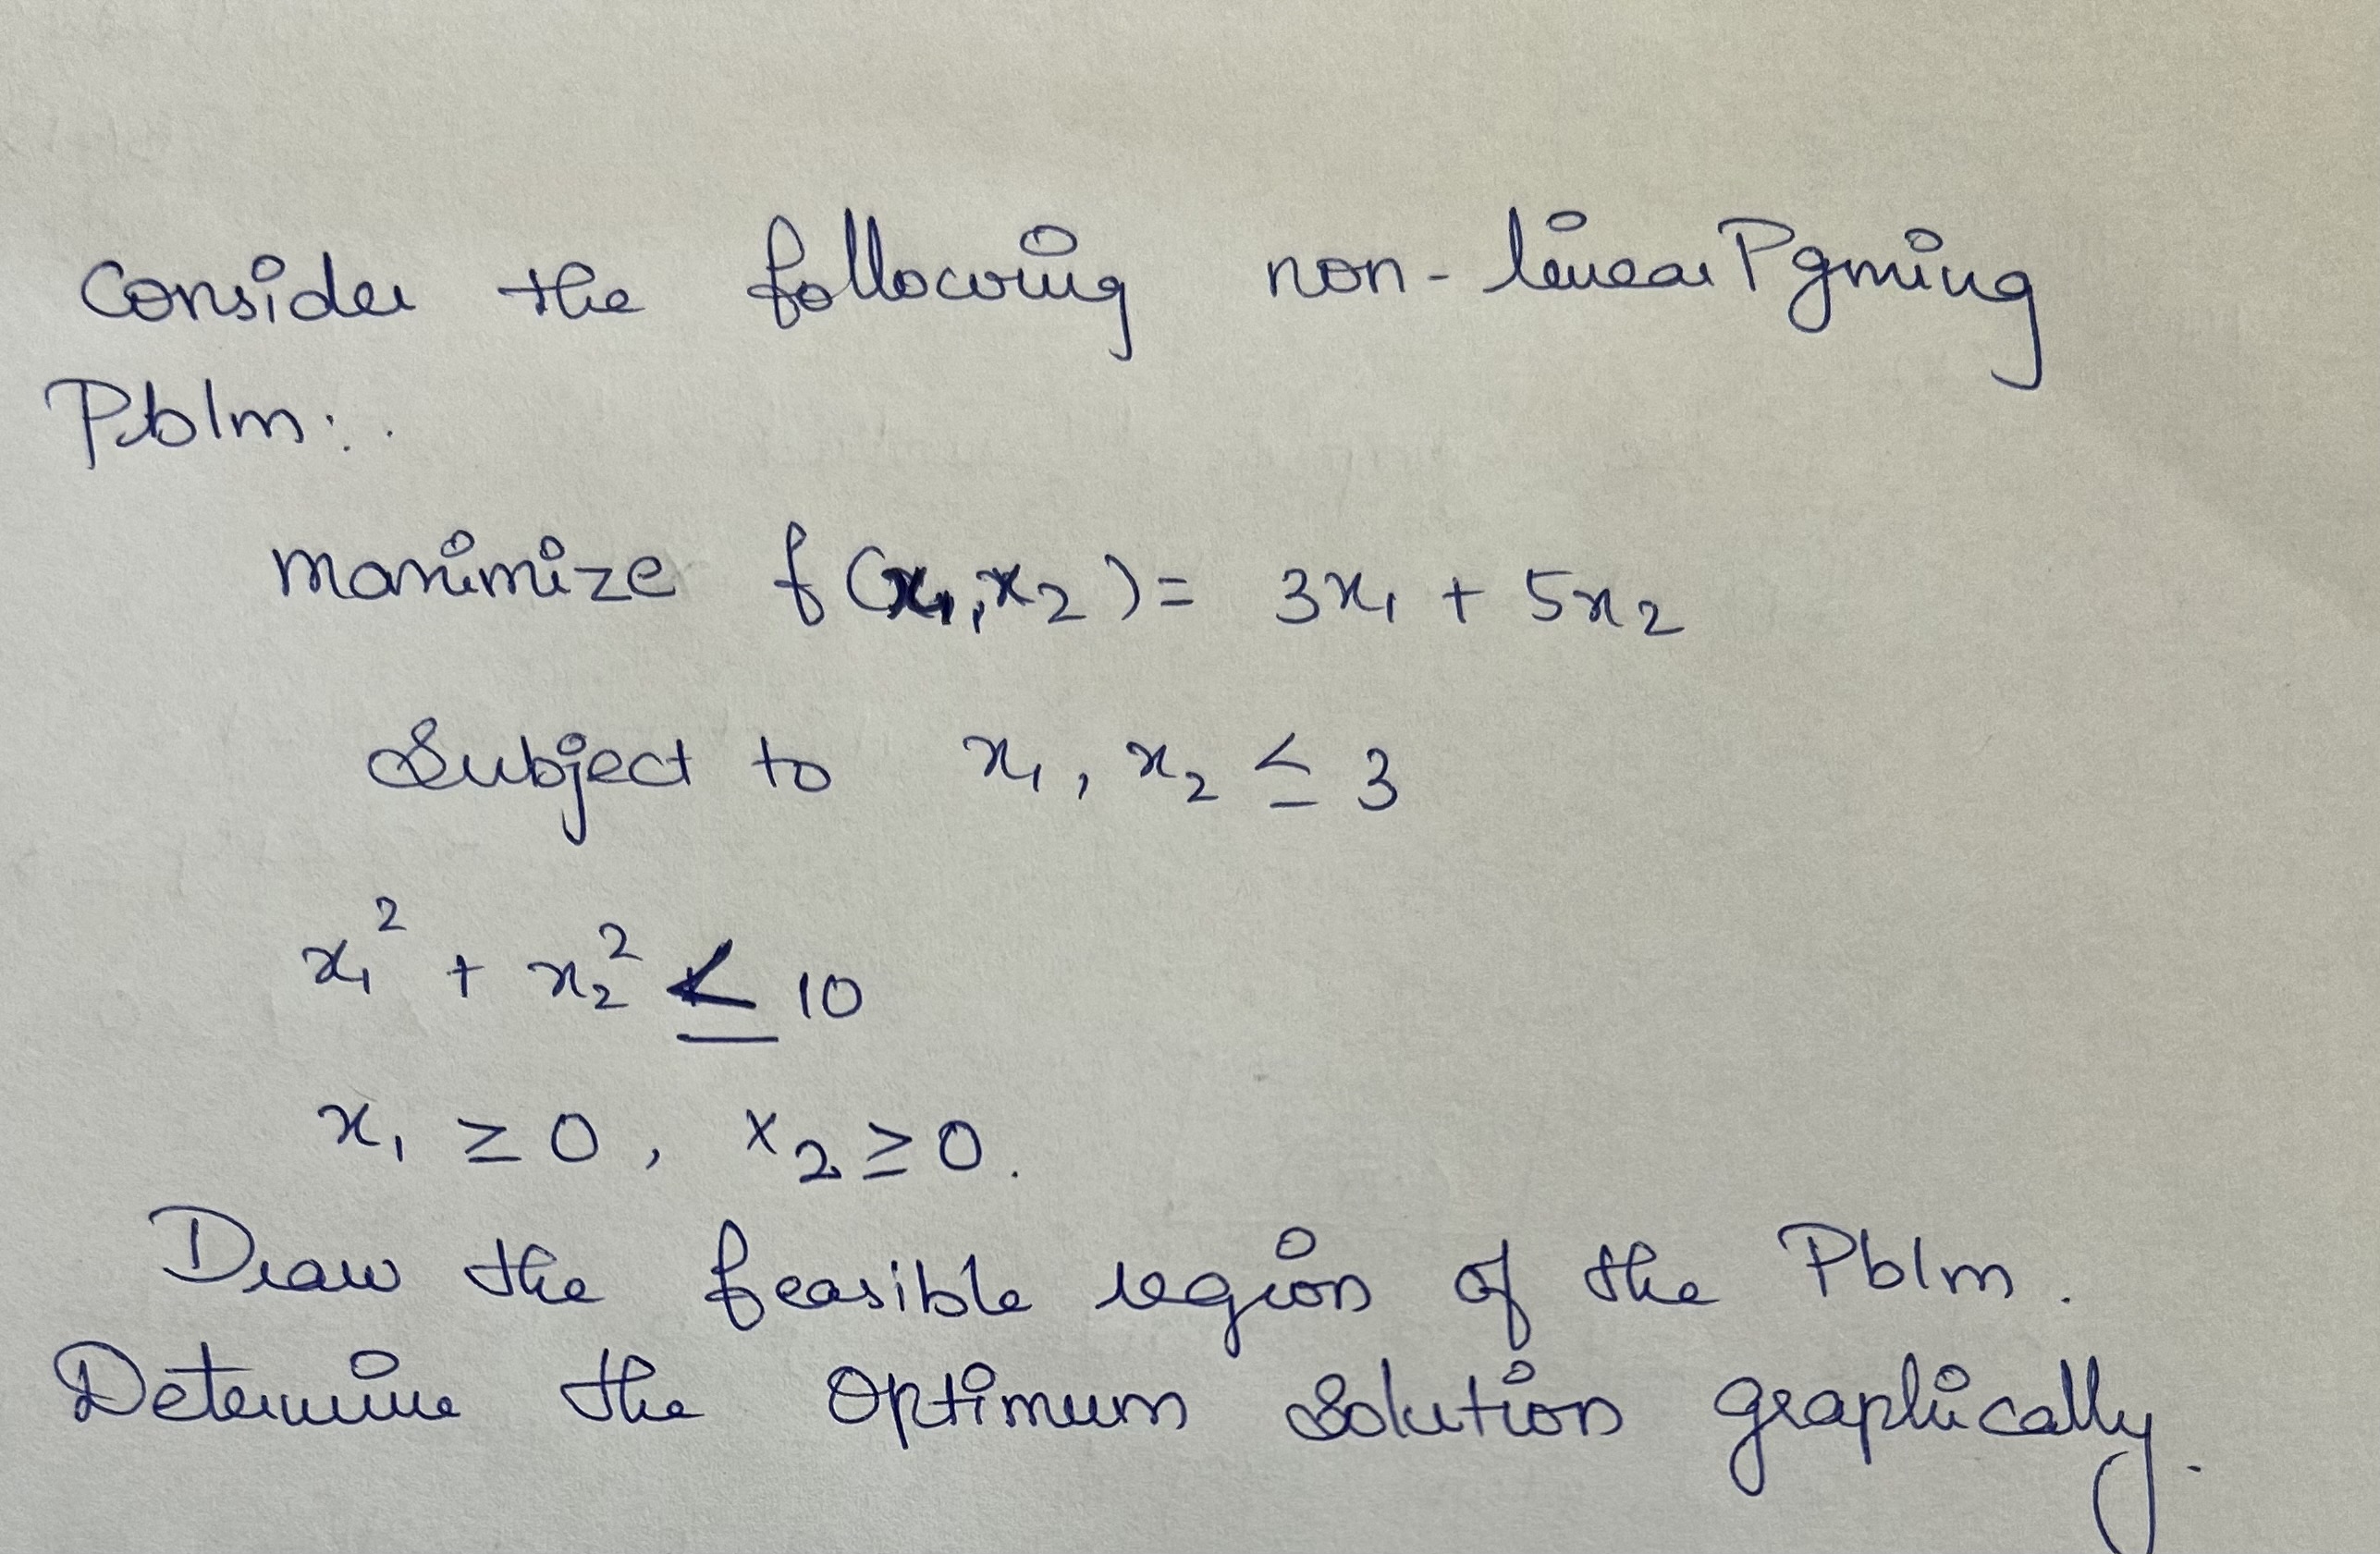 Consider the following non-linear Pgming
Pblm:.
maximize f(x₁,x₂) = 3x₁ + 5x₂
Subject to x₁, x₂ ≤ 3
x₁² + x₂² ≤ 10
x₁ ≥ 0, x₂ ≥ 0.
Draw the feasible region of the Pblm.
Determine the Optimum Solution graphically.